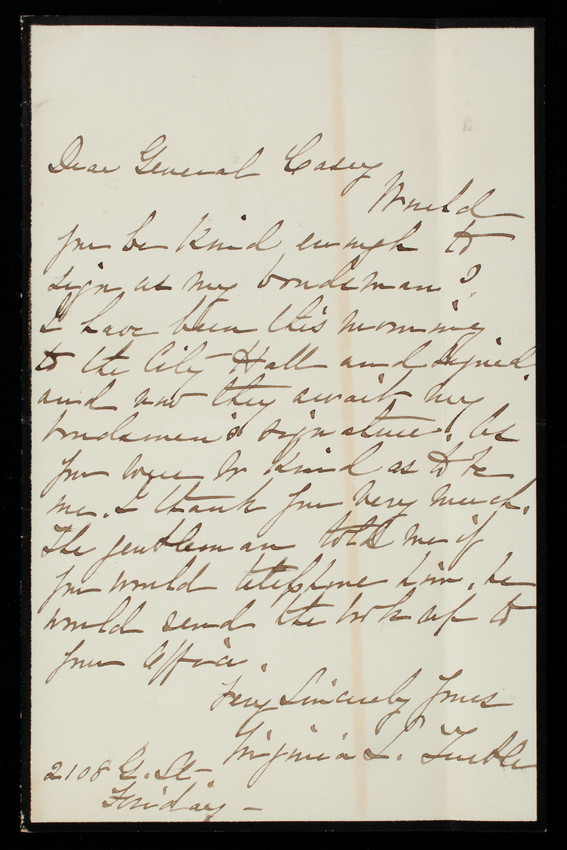 Dear General Casey
Would
you be kind enough to
sign as my bondsman?
I have been this morning
to the City Hall and signed
and now they await my
bondsmen's signature. As
you were so kind as to be
me. I thank you very much.
The gentleman told me if
you would telephone him, he
would send the book up to
your office.
Very Sincerely Yours
Virginia L. Tuttle
2108 G. St-
Friday-